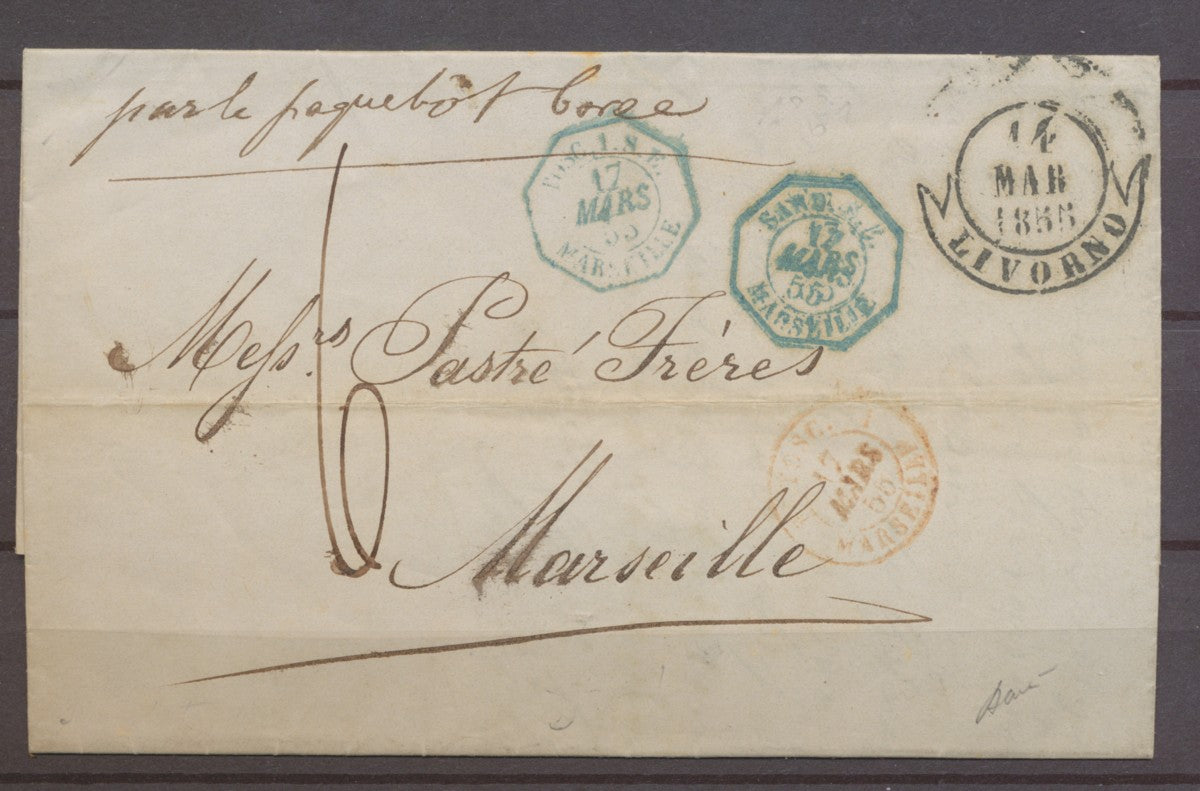 par le paquebôt borée
TOSC. 1. S. E.
17
MARS
55
MARSEILLE
SARD.
17
MARS
55
MARSEILLE
14
MAR
1855
LIVORNO
Messrs. Pastré Fréres
6
TOSC.
17
MARS
55
MARSEILLE
Marseille